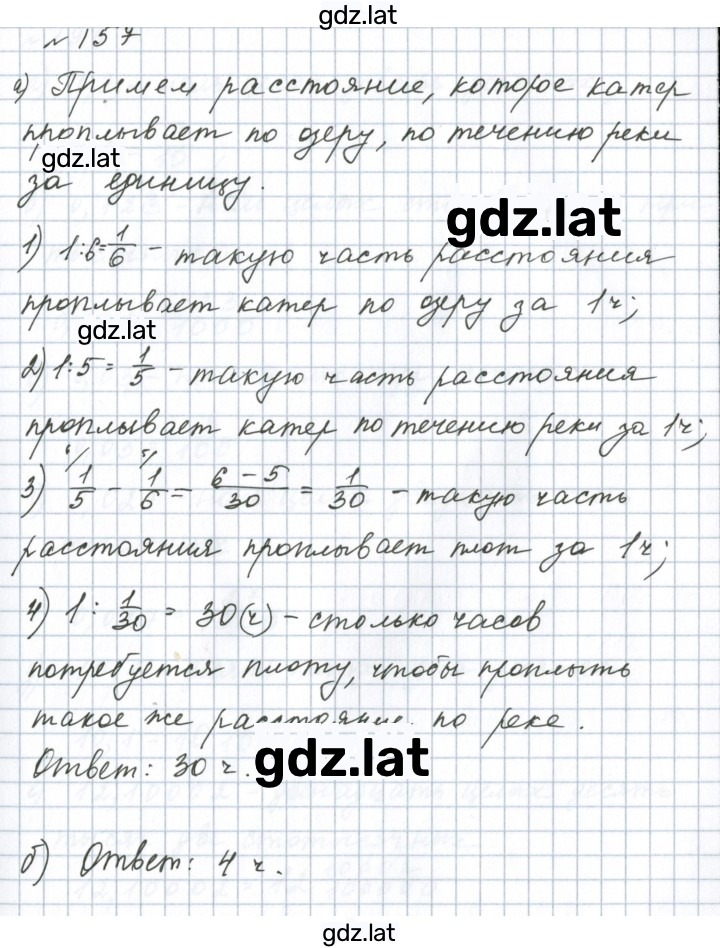 gdz.lat
№ 157
а) Примем расстояние, которое катер
проплывает по озеру, по течению реки
gdz.lat
за единицу.
gdz.lat
1) 1:6=1/6 - такую часть расстояния
проплывает катер по озеру за 1ч;
gdz.lat
2) 1:5=1/5 - такую часть расстояния
проплывает катер по течению реки за 1ч;
3) 6/ 1/5 - 5/ 1/6 = (6-5)/30 = 1/30 - такую часть
расстояния проплывает плот за 1ч;
4) 1: 1/30 = 30(ч) - столько часов
потребуется плоту, чтобы проплыть
такое же расстояние по реке.
Ответ: 30 ч.
gdz.lat
б) Ответ: 4 ч.
gdz.lat